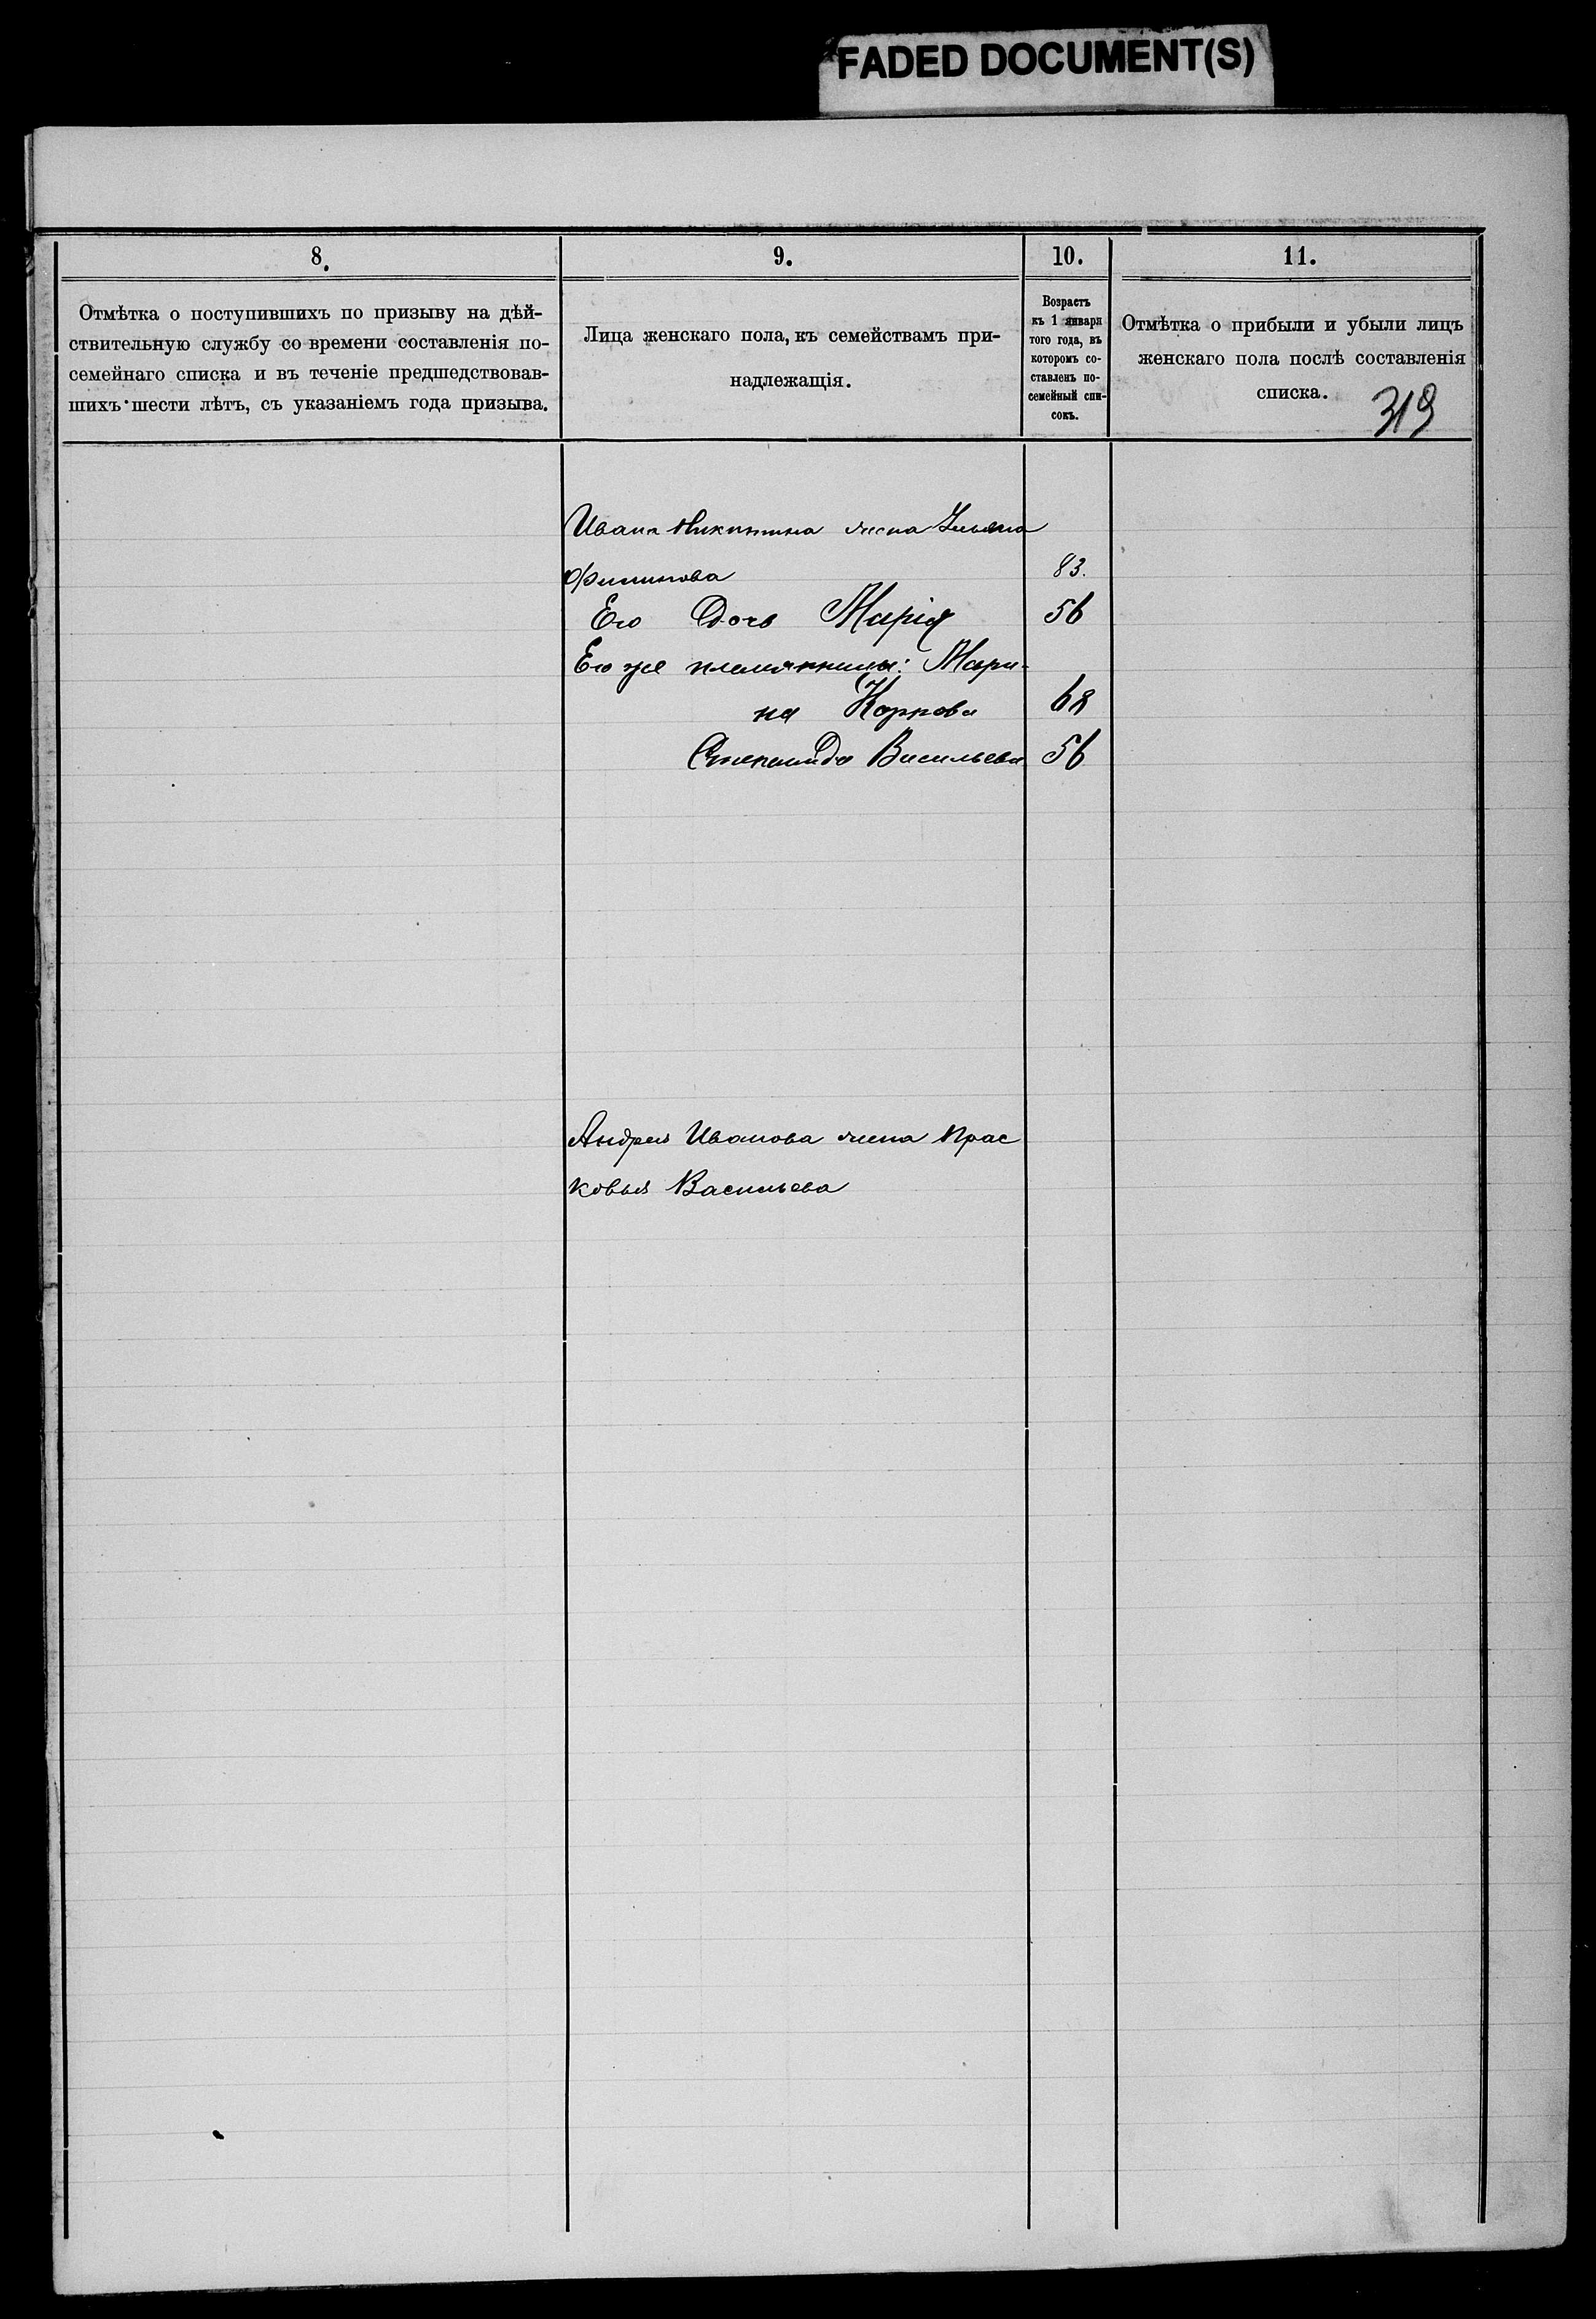 FADED DOCUMENT(S)
8.
9.
10.
11.
Отмѣтка о поступившихъ по призыву на дѣй-
ствительную службу со времени составленія по-
семейнаго списка и въ теченіе предшедствовав-
шихъ шести лѣтъ, съ указаніемъ года призыва.
Лица женскаго пола, къ семействамъ при-
надлежащія.
Возрастъ
къ 1 января
того года, въ
которомъ со-
ставленъ по-
семейный спи-
сокъ.
Отмѣтка о прибыли и убыли лицъ
женскаго пола послѣ составленія
списка.
319
Ивана Никитина жена Ульяна
Филипова 83.
Его Дочь Марія 56
Его же племянницы: Мари-
на Карпова 68
Степанида Васильева 56
Андрея Иванова жена Прас
ковья Васильева